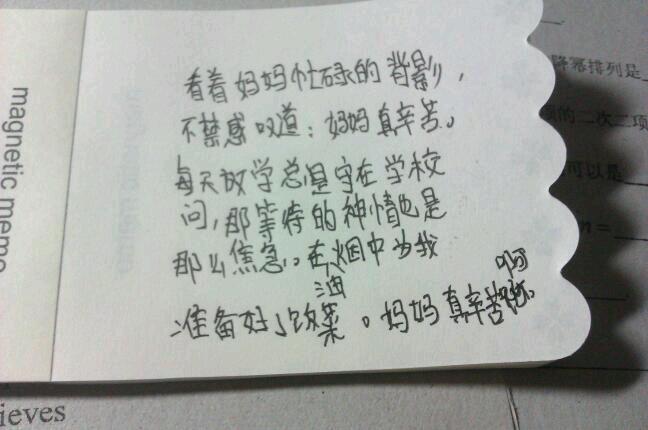 看着妈妈忙碌的背影，
不禁感叹道：妈妈真辛苦。
每天放学总是守在学校
问，那等待的神情也是
那么焦急。在油烟中为我
准备好了饭菜。妈妈真辛苦啊。
magnetic memo
降幂排列是
的二次三项
可以是
=
ieves